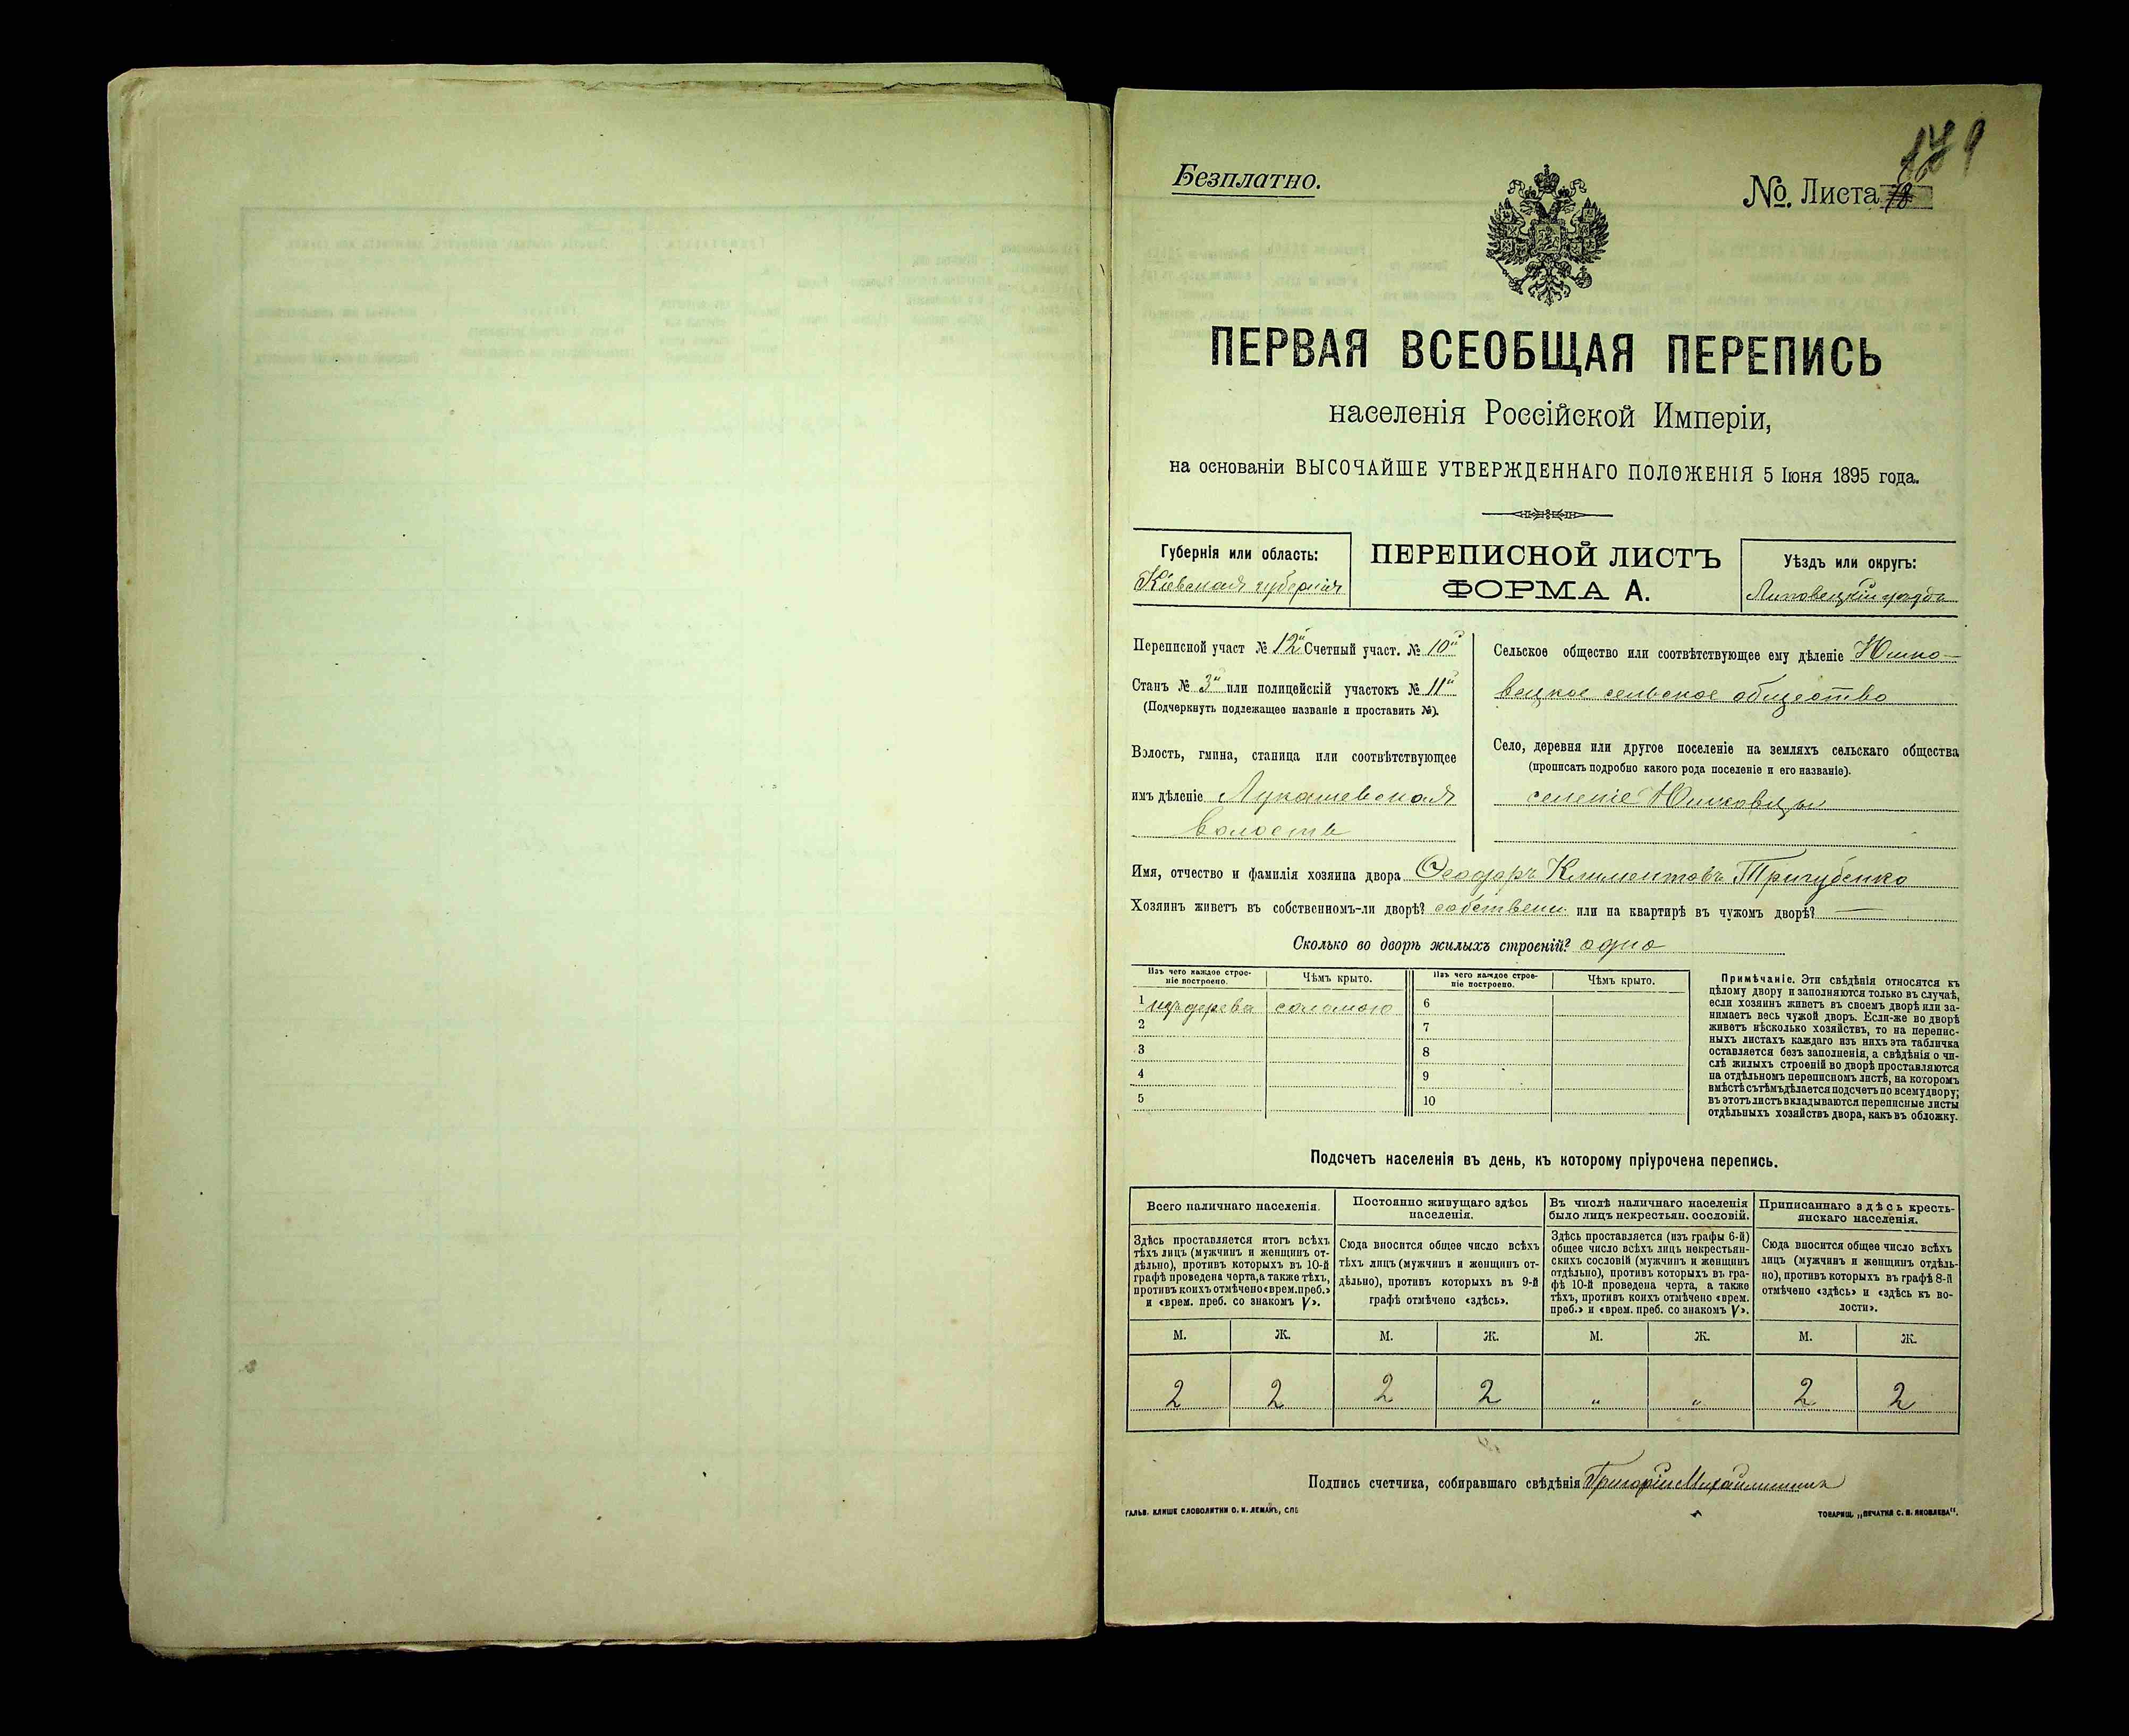 Безплатно.
№. Листа 78
ПЕРВАЯ ВСЕОБЩАЯ ПЕРЕПИСЬ
населенія Россійской Имперіи,
на основаніи ВЫСОЧАЙШЕ УТВЕРЖДЕННАГО ПОЛОЖЕНІЯ 5 Іюня 1895 года.
Губернія или область:
Кіевская губернія
ПЕРЕПИСНОЙ ЛИСТЪ
ФОРМА А.
Уѣздъ или округъ:
Липовецкій уѣздъ
Переписной участ № 12й Счетный участ. № 10й
Станъ № 3й или полицейскій участокъ № 11й
(Подчеркнуть подлежащее названіе и проставить №).
Волость, гмина, станица или соотвѣтствующее
имъ дѣленіе Лукашевская
волость
Сельское общество или соотвѣтствующее ему дѣленіе Юшко-
вецкое сельское общество
Село, деревня или другое поселеніе на земляхъ сельскаго общества
(прописать подробно какого рода поселеніе и его названіе).
селеніе Юшковцы
Имя, отчество и фамилія хозяина двора Ѳеодоръ Климентовъ Тригубенко
Хозяинъ живетъ въ собственномъ-ли дворѣ? собствени. или на квартирѣ въ чужомъ дворѣ? —
Сколько во дворѣ жилыхъ строеній? одно
Изъ чего каждое строе-
ніе построено.
Чѣмъ крыто.
Изъ чего каждое строе-
ніе построено.
Чѣмъ крыто.
1 изъ дерева соломою 6
2 7
3 8
4 9
5 10
Примѣчаніе. Эти свѣдѣнія относятся къ
цѣлому двору и заполняются только въ случаѣ,
если хозяинъ живетъ въ своемъ дворѣ или за-
нимаетъ весь чужой дворъ. Если-же во дворѣ
живетъ нѣсколько хозяйствъ, то на перепис-
ныхъ листахъ каждаго изъ нихъ эта табличка
оставляется безъ заполненія, а свѣдѣнія о чи-
слѣ жилыхъ строеній во дворѣ проставляются
на отдѣльномъ переписномъ листѣ, на которомъ
вмѣстѣ съ тѣмъ дѣлается подсчетъ по всему двору;
въ этотъ листъ вкладываются переписные листы
отдѣльныхъ хозяйствъ двора, какъ въ обложку.
Подсчетъ населенія въ день, къ которому пріурочена перепись.
Всего наличнаго населенія.
Здѣсь проставляется итогъ всѣхъ
тѣхъ лицъ (мужчинъ и женщинъ от-
дѣльно), противъ которыхъ въ 10-й
графѣ проведена черта, а также тѣхъ,
противъ коихъ отмѣчено «врем. преб.»
и «врем. преб. со знакомъ V».
Постоянно живущаго здѣсь
населенія.
Сюда вносится общее число всѣхъ
тѣхъ лицъ (мужчинъ и женщинъ от-
дѣльно), противъ которыхъ въ 9-й
графѣ отмѣчено «здѣсь».
Въ числѣ наличнаго населенія
было лицъ некрестьян. сословій.
Здѣсь проставляется (изъ графы 6-й)
общее число всѣхъ лицъ некрестьян-
скихъ сословій (мужчинъ и женщинъ
отдѣльно), противъ которыхъ въ гра-
фѣ 10-й проведена черта, а также
тѣхъ, противъ коихъ отмѣчено «врем.
преб.» и «врем. преб. со знакомъ V».
Приписаннаго здѣсь кресть-
янскаго населенія.
Сюда вносится общее число всѣхъ
лицъ (мужчинъ и женщинъ отдѣль-
но), противъ которыхъ въ графѣ 8-й
отмѣчено «здѣсь» и «здѣсь къ во-
лости».
М. Ж. М. Ж. М. Ж. М. Ж.
2 2 2 2 " " 2 2
Подпись счетчика, собиравшаго свѣдѣнія Григорій
ГАЛЬВ. КЛИШЕ СЛОВОЛИТНИ О. И. ЛЕМАНЪ, СПБ
ТОВАРИЩ. „ПЕЧАТНЯ С. П. ЯКОВЛЕВА".